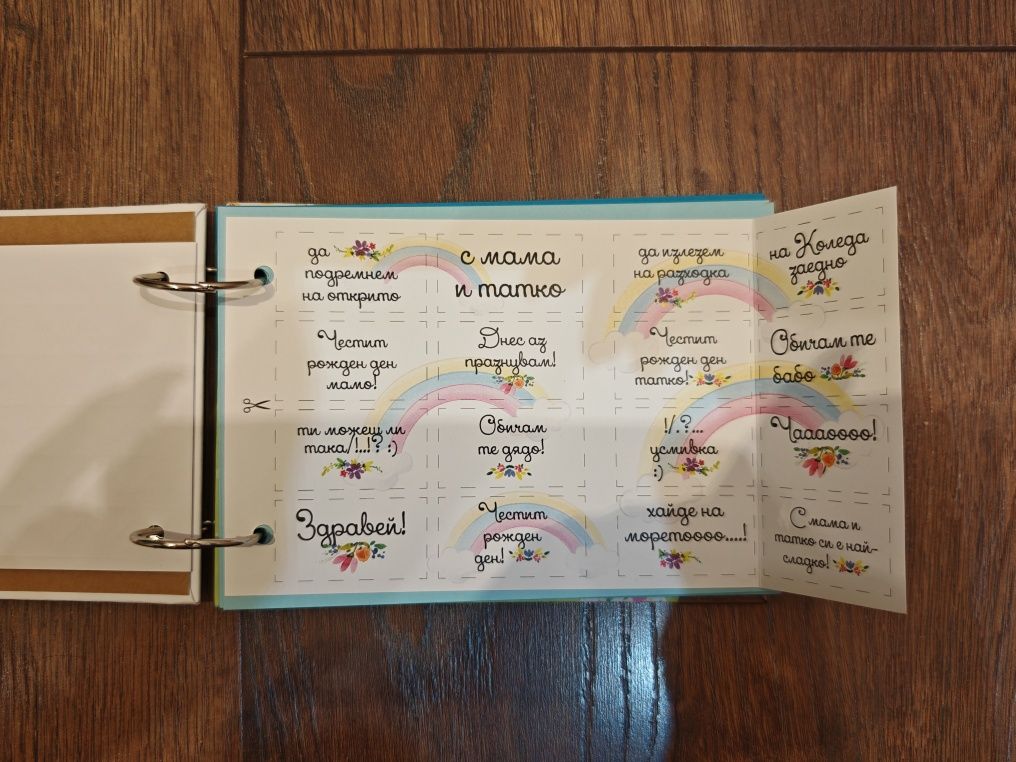 да
подремнем
на открито
с мама
и татко
да излезем
на разходка
на Коледа
заедно
Честит
рожден ден
мамо!
Днес аз
празнувам!
Честит
рожден ден
татко!
Обичам те
бабо
ти можеш ли
така/!..!? :)
Обичам
те дядо!
!/.?...
усмивка
:)
Чааaоооо!
Здравей!
Честит
рожден
ден!
хайде на
моретоооо....!
С мама и
татко си е най-
сладко!